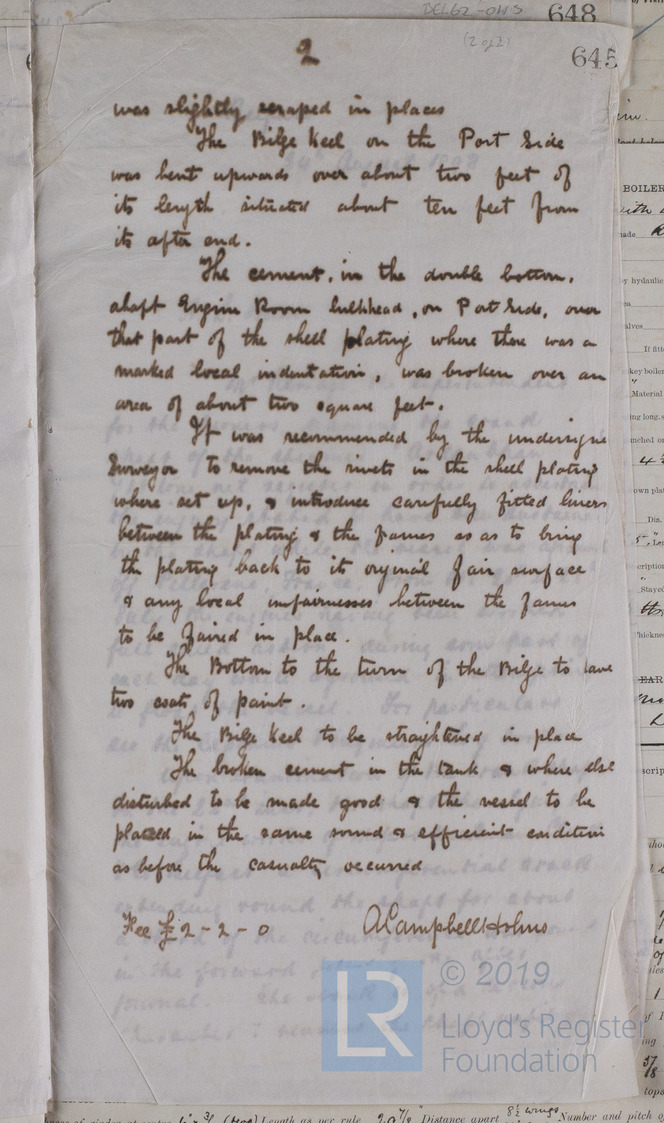 DEL62-0115 648
(2 of 2)
2
645
was slightly scraped in places
The Bilge Keel on the Port Side
was bent upwards over about two feet of
its length situated about ten feet from
its after end.
The cement, in the double bottom,
abaft Engine Room bulkhead, on Port Side, over
that part of the shell plating where there was a
marked local indentation, was broken over an
area of about two square feet.
It was recommended by the undersigne
Surveyor to remove the rivets in the shell plating
where set up, & introduce carefully fitted liners
between the plating & the frames so as to bring
the plating back to its original fair surface
& any local unfairnesses between the frames
to be faired in place.
The Bottom to the turn of the Bilge to have
two coats of paint.
The Bilge Keel to be straightened in place
The broken cement in the tank & where else
disturbed to be made good & the vessel to be
placed in the same sound & efficient condition
as before the casualty occurred
Fee £2-2-0 A Campbell Holms
LR © 2019
Lloyd's Register
Foundation
BOILER
with
made
by hydraulic
valves
If fitt
key boiler
Material
ing long.
nched or
own plat
Dia.
Len
cription
Staye
hickne
EAR
scrip
Length as per rule 20 7/8" Distance apart 8½ wings Number and pitch o
tops